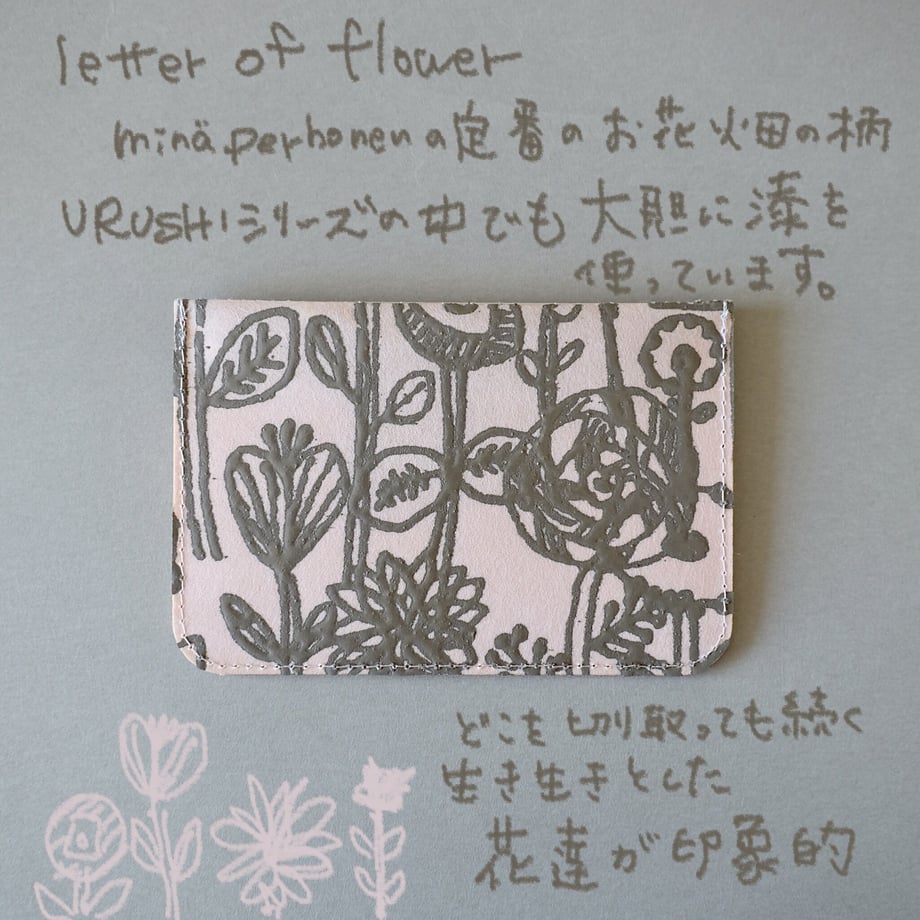 letter of flower
minä perhonenの定番のお花畑の柄
URUSHIシリーズの中でも大胆に漆を
使っています。
どこを切り取っても続く
生き生きとした
花達が印象的